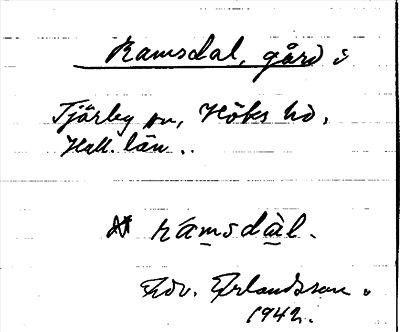 Ramsdal, gård i
Tjärby sn, Höks hd,
Hall. län..
ramsdàl.
Edv. Erlandsson.
1942.